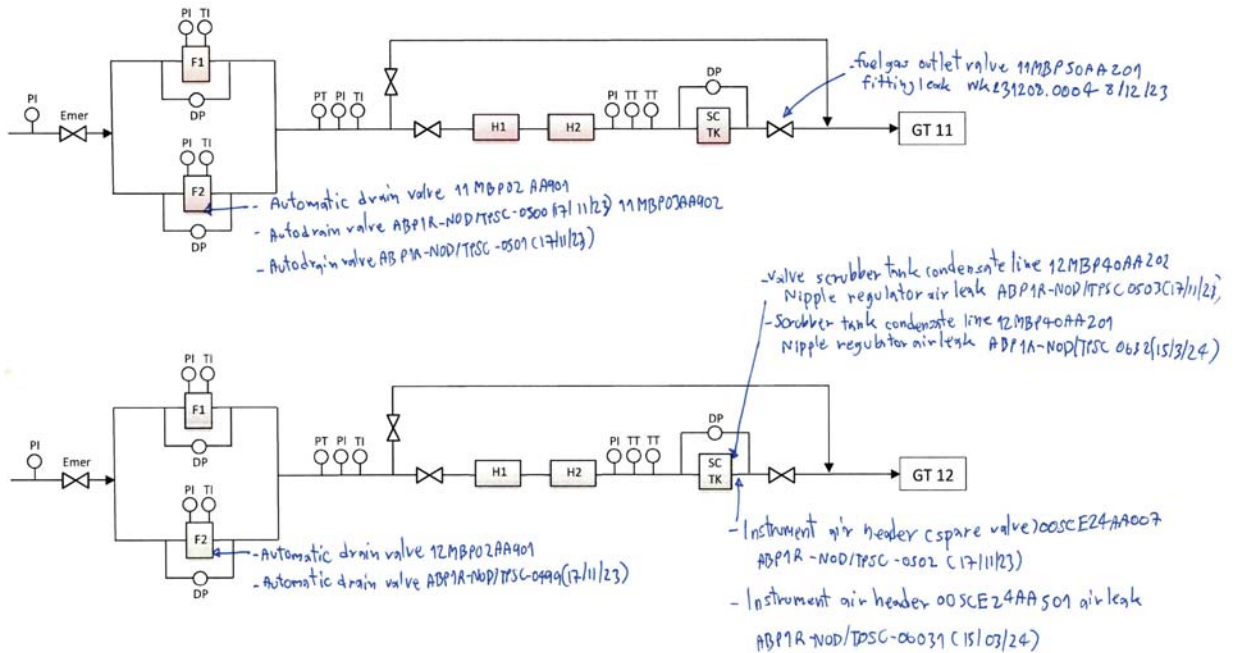 PI TI
F1
DP
PI
Emer
PI TI
F2
DP
PT PI TI
H1
H2
PI TT TT
DP
SC
TK
GT 11
-fuel gas outlet valve 11MBP50AA201
fitting leak WK231208.0004 8/12/23
- Automatic drain valve 11MBP02AA901
- Autodrain valve ABP1R-NOD/TPSC-0500(17/11/23) 11MBP03AA902
- Autodrain valve ABP1R-NOD/TPSC-0501(17/11/23)
-valve scrubber tank condensate line 12MBP40AA202
Nipple regulator air leak ABP1R-NOD/TPSC 0503(17/11/23)
-Scrubber tank condensate line 12MBP40AA201
Nipple regulator air leak ABP1R-NOD/TPSC 0632(15/3/24)
PI TI
F1
DP
PI
Emer
PI TI
F2
DP
PT PI TI
H1
H2
PI TT TT
DP
SC
TK
GT 12
-Automatic drain valve 12MBP02AA901
-Automatic drain valve ABP1R-NOD/TPSC-0499(17/11/23)
-Instrument air header (spare valve)00SCE24AA007
ABP1R-NOD/TPSC-0502 (17/11/23)
- Instrument air header 00SCE24AA501 air leak
ABP1R-NOD/TPSC-06031 (15/03/24)